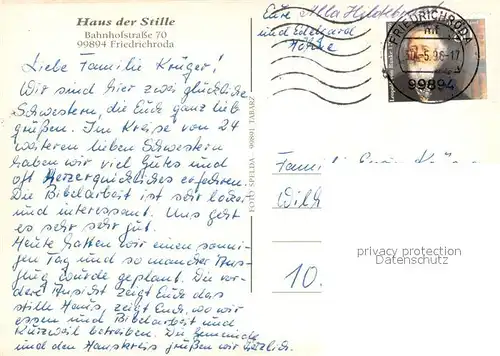 Haus der Stille
Bahnhofstraße 70
99894 Friedrichroda
Liebe Familie Krüger!
Wir sind hier zwei glückliche
Schwestern, die Euch ganz lieb
grüßen. Im Kreise von 24
weiteren lieben Schwestern
haben wir viel Gutes und
oft Herzerquickliches erfahren.
Die Bibelarbeit ist sehr locker
und interessant. Uns geht
es sehr sehr gut.
Heute hatten wir einen sonni-
gen Tag und so mancher Aus-
flug wurde geplant. Die vor-
dere Ansicht zeigt Euch das
stille Haus, zeigt Euch, wo wir
essen und Bibelarbeit und
Kurzweil betreiben. Die Gemeinde
und den Hauskreis grüßen wir herzlich.
Eure
und Edeltraud
FOTO SPELDA · 99891 TABARZ
FRIEDRICHRODA
99894
Familie
10.
privacy protection
Datenschutz